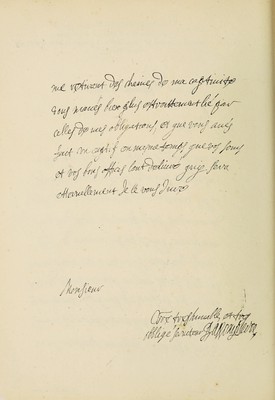 me retirant des chaines de ma captivité
vous m'avés lié plus estroittement par
celles de mes obligations, et que vous avés
fait un captif en mesme temps que vos soins
et vos bons offices l'ont delivré qui sera
éternellement de le vous
Monsieur
Vostre treshumble et tres
obligé serviteur